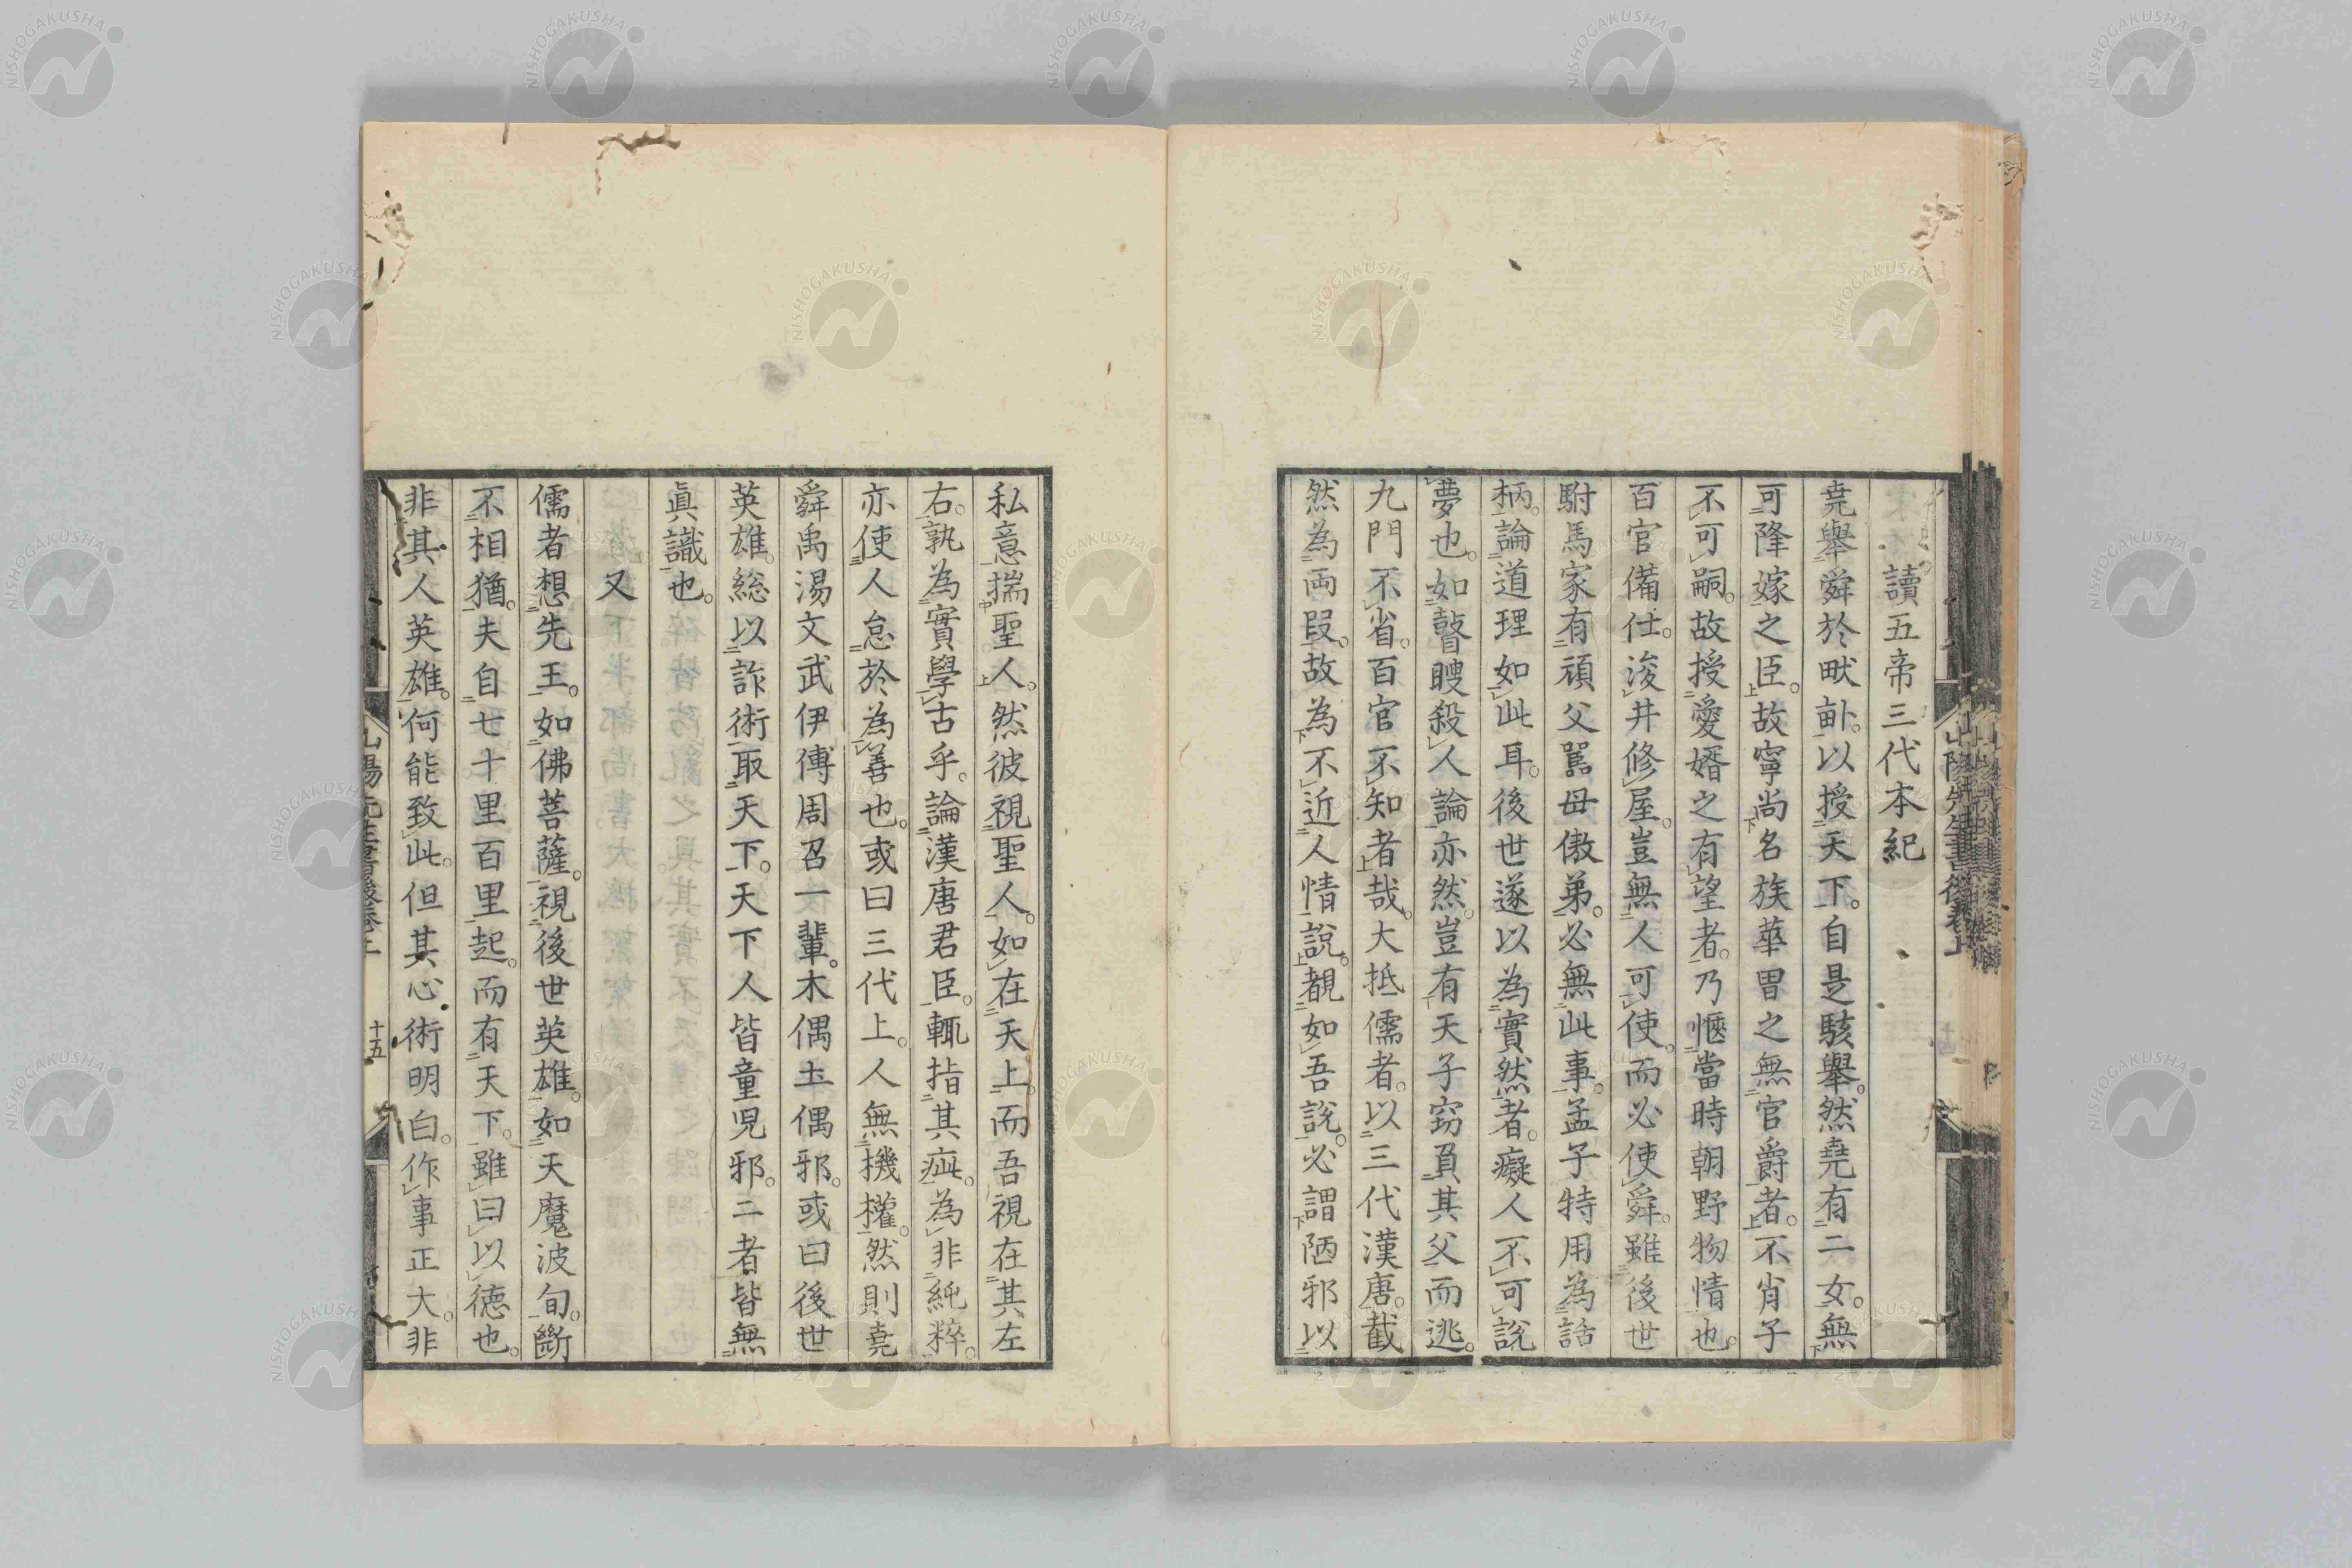 讀五帝三代本紀
堯舉舜於畎畝。以授天下。自是駭舉。然堯有二女。無
可降嫁之臣。故寧尚名族華冑之無官爵者。不肖子
不可嗣。故授愛婿之有望者。乃愜當時朝野物情也。
百官備仕。浚井修屋。豈無人可使。而必使舜。雖後世
駙馬家有頑父嚚母傲弟。必無此事。孟子特用為話
柄。論道理如此耳。後世遂以為實然者。癡人不可說
夢也。如瞽瞍殺人論亦然。豈有天子竊負其父而逃。
九門不省。百官不知者哉。大抵儒者。以三代漢唐。截
然為兩段。故為不近人情說。覩如吾說。必謂陋邪以
私意揣聖人。然彼視聖人。如在天上。而吾視在其左
右。孰為實學古乎。論漢唐君臣。輒指其疵。為非純粹。
亦使人怠於為善也。或曰三代上。人無機權。然則堯
舜禹湯文武伊傅周召一輩。木偶土偶邪。或曰後世
英雄。総以詐術取天下。天下人皆童児邪。二者皆無
眞識也。
又
儒者想先王。如佛菩薩。視後世英雄。如天魔波旬。斷
不相猶。夫自七十里百里起。而有天下。雖曰以德也。
非其人英雄。何能致此。但其心術明白。作事正大。非
山陽先生書後卷上
十五
山陽先生書後卷上
NISHOGAKUSHA